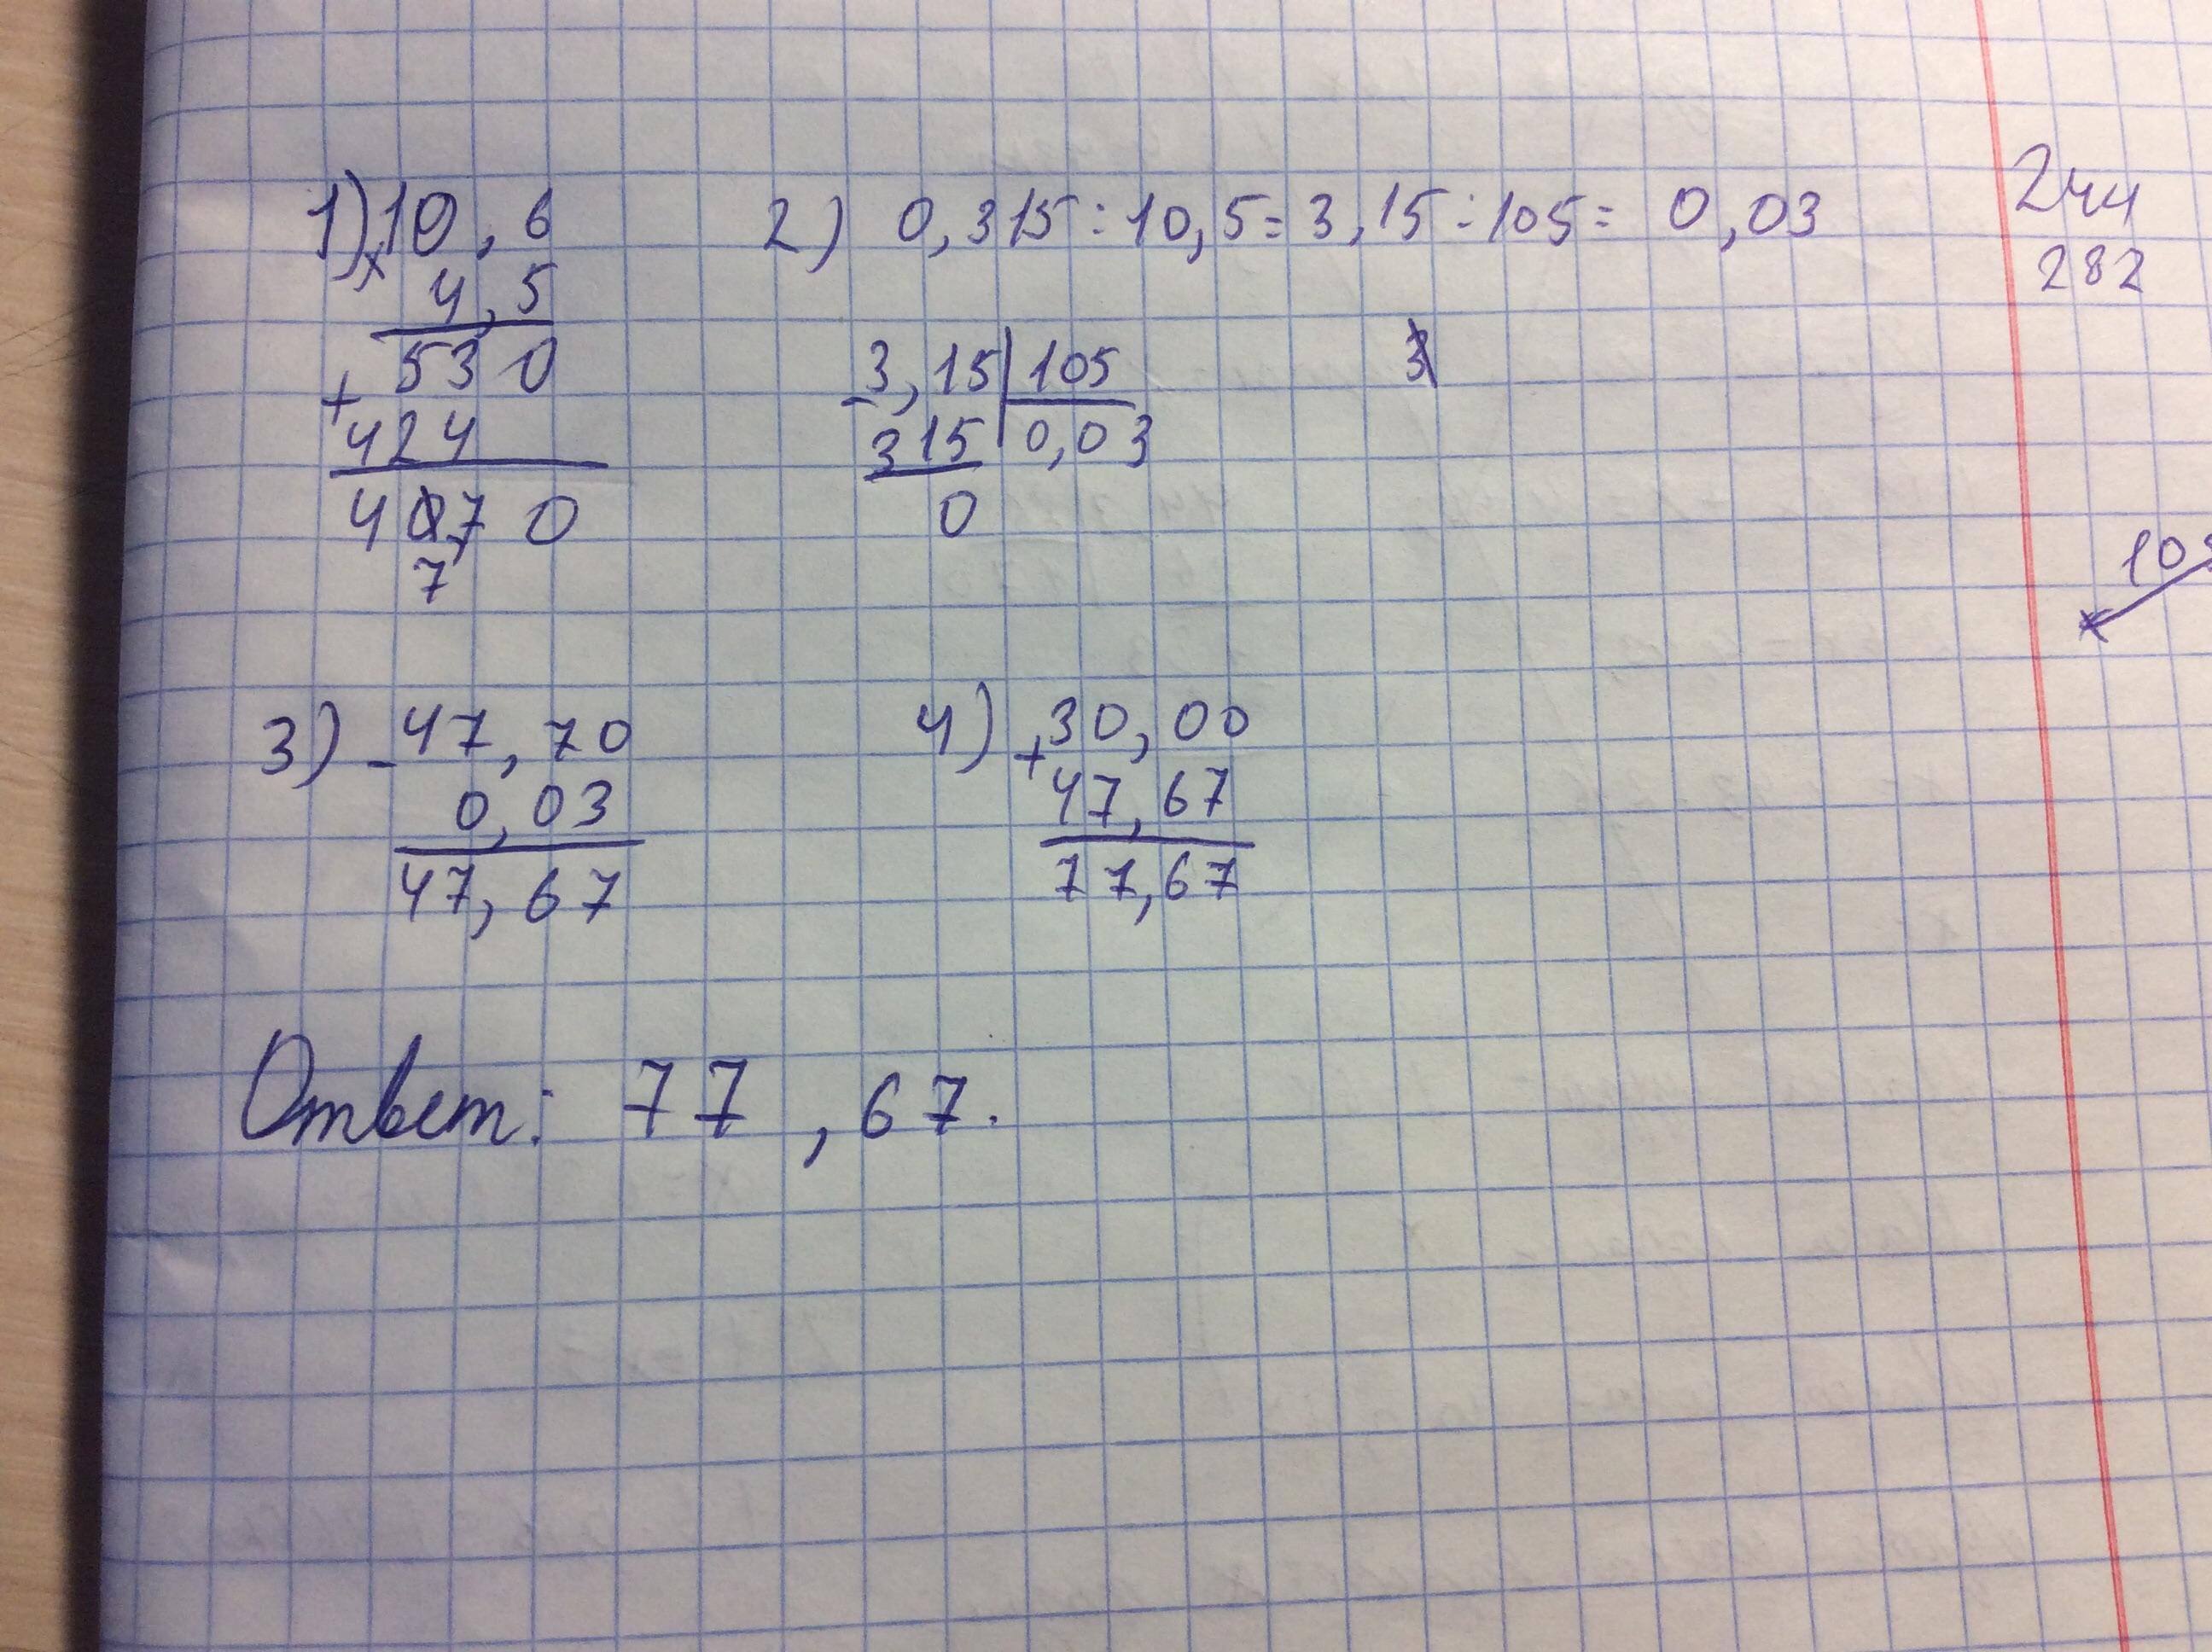 1) 10,6
× 4,5
530
+
424
4077 0
7
2) 0,315:10,5=3,15:105= 0,03
- 3,15 | 105
315 | 0,03
0
3) - 47,70
0,03
47,67
4) + 30,00
47,67
77,67
Ответ: 77,67.
244
282